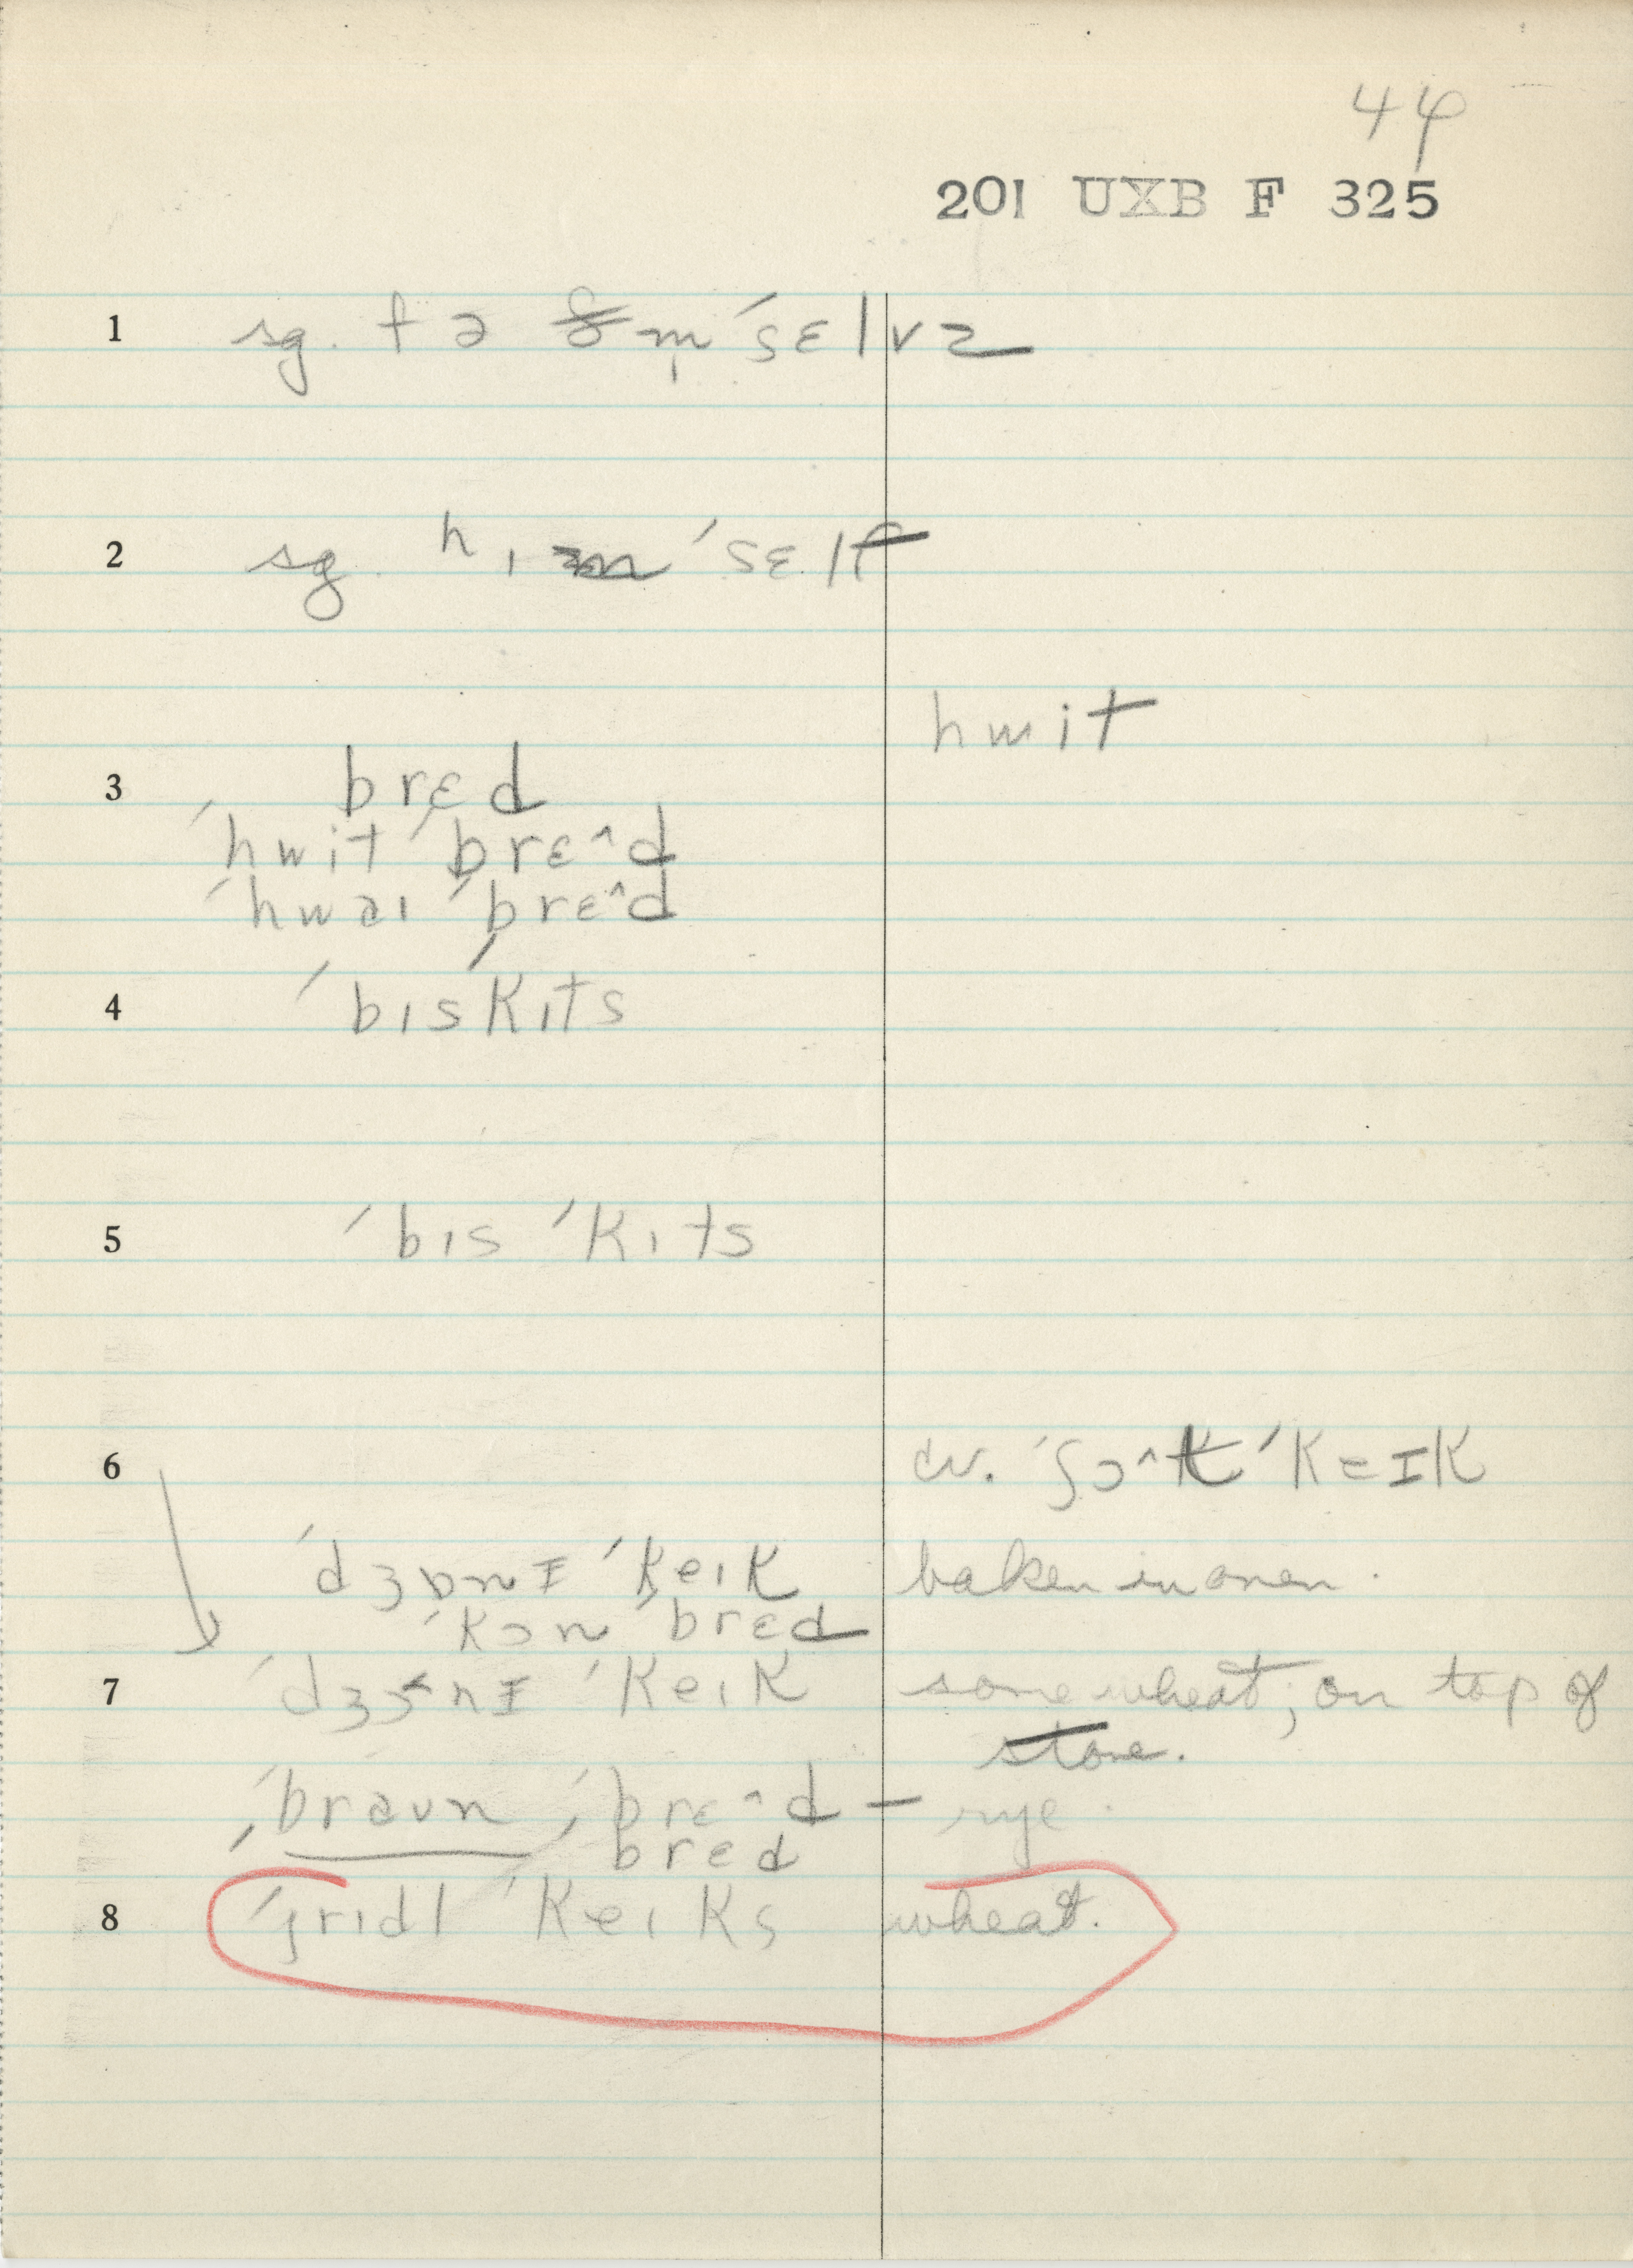 44
201 UXB F 325
1 sg. fə m̩ ˈsɛlvz
2 sg. hɪm ˈsɛlf
hwit
3 brɛd
ˈhwit ˈbrɛ^d
ˈhwaɪ ˈbrɛ^d
4 ˈbɪsˈkɪts
5 ˈbɪs ˈkɪts
6 cv. ˈʃɔ^t ˈkeɪk
ˈdʒɒnɪ ˈkeɪk baken in oven.
ˈkɔn ˈbrɛd
7 ˈkeɪk some wheat; on top of
stove.
ˈbraun ˈbrɛ^d — rye.
brɛd
8 ˈgrɪdl ˈkeɪks wheat.